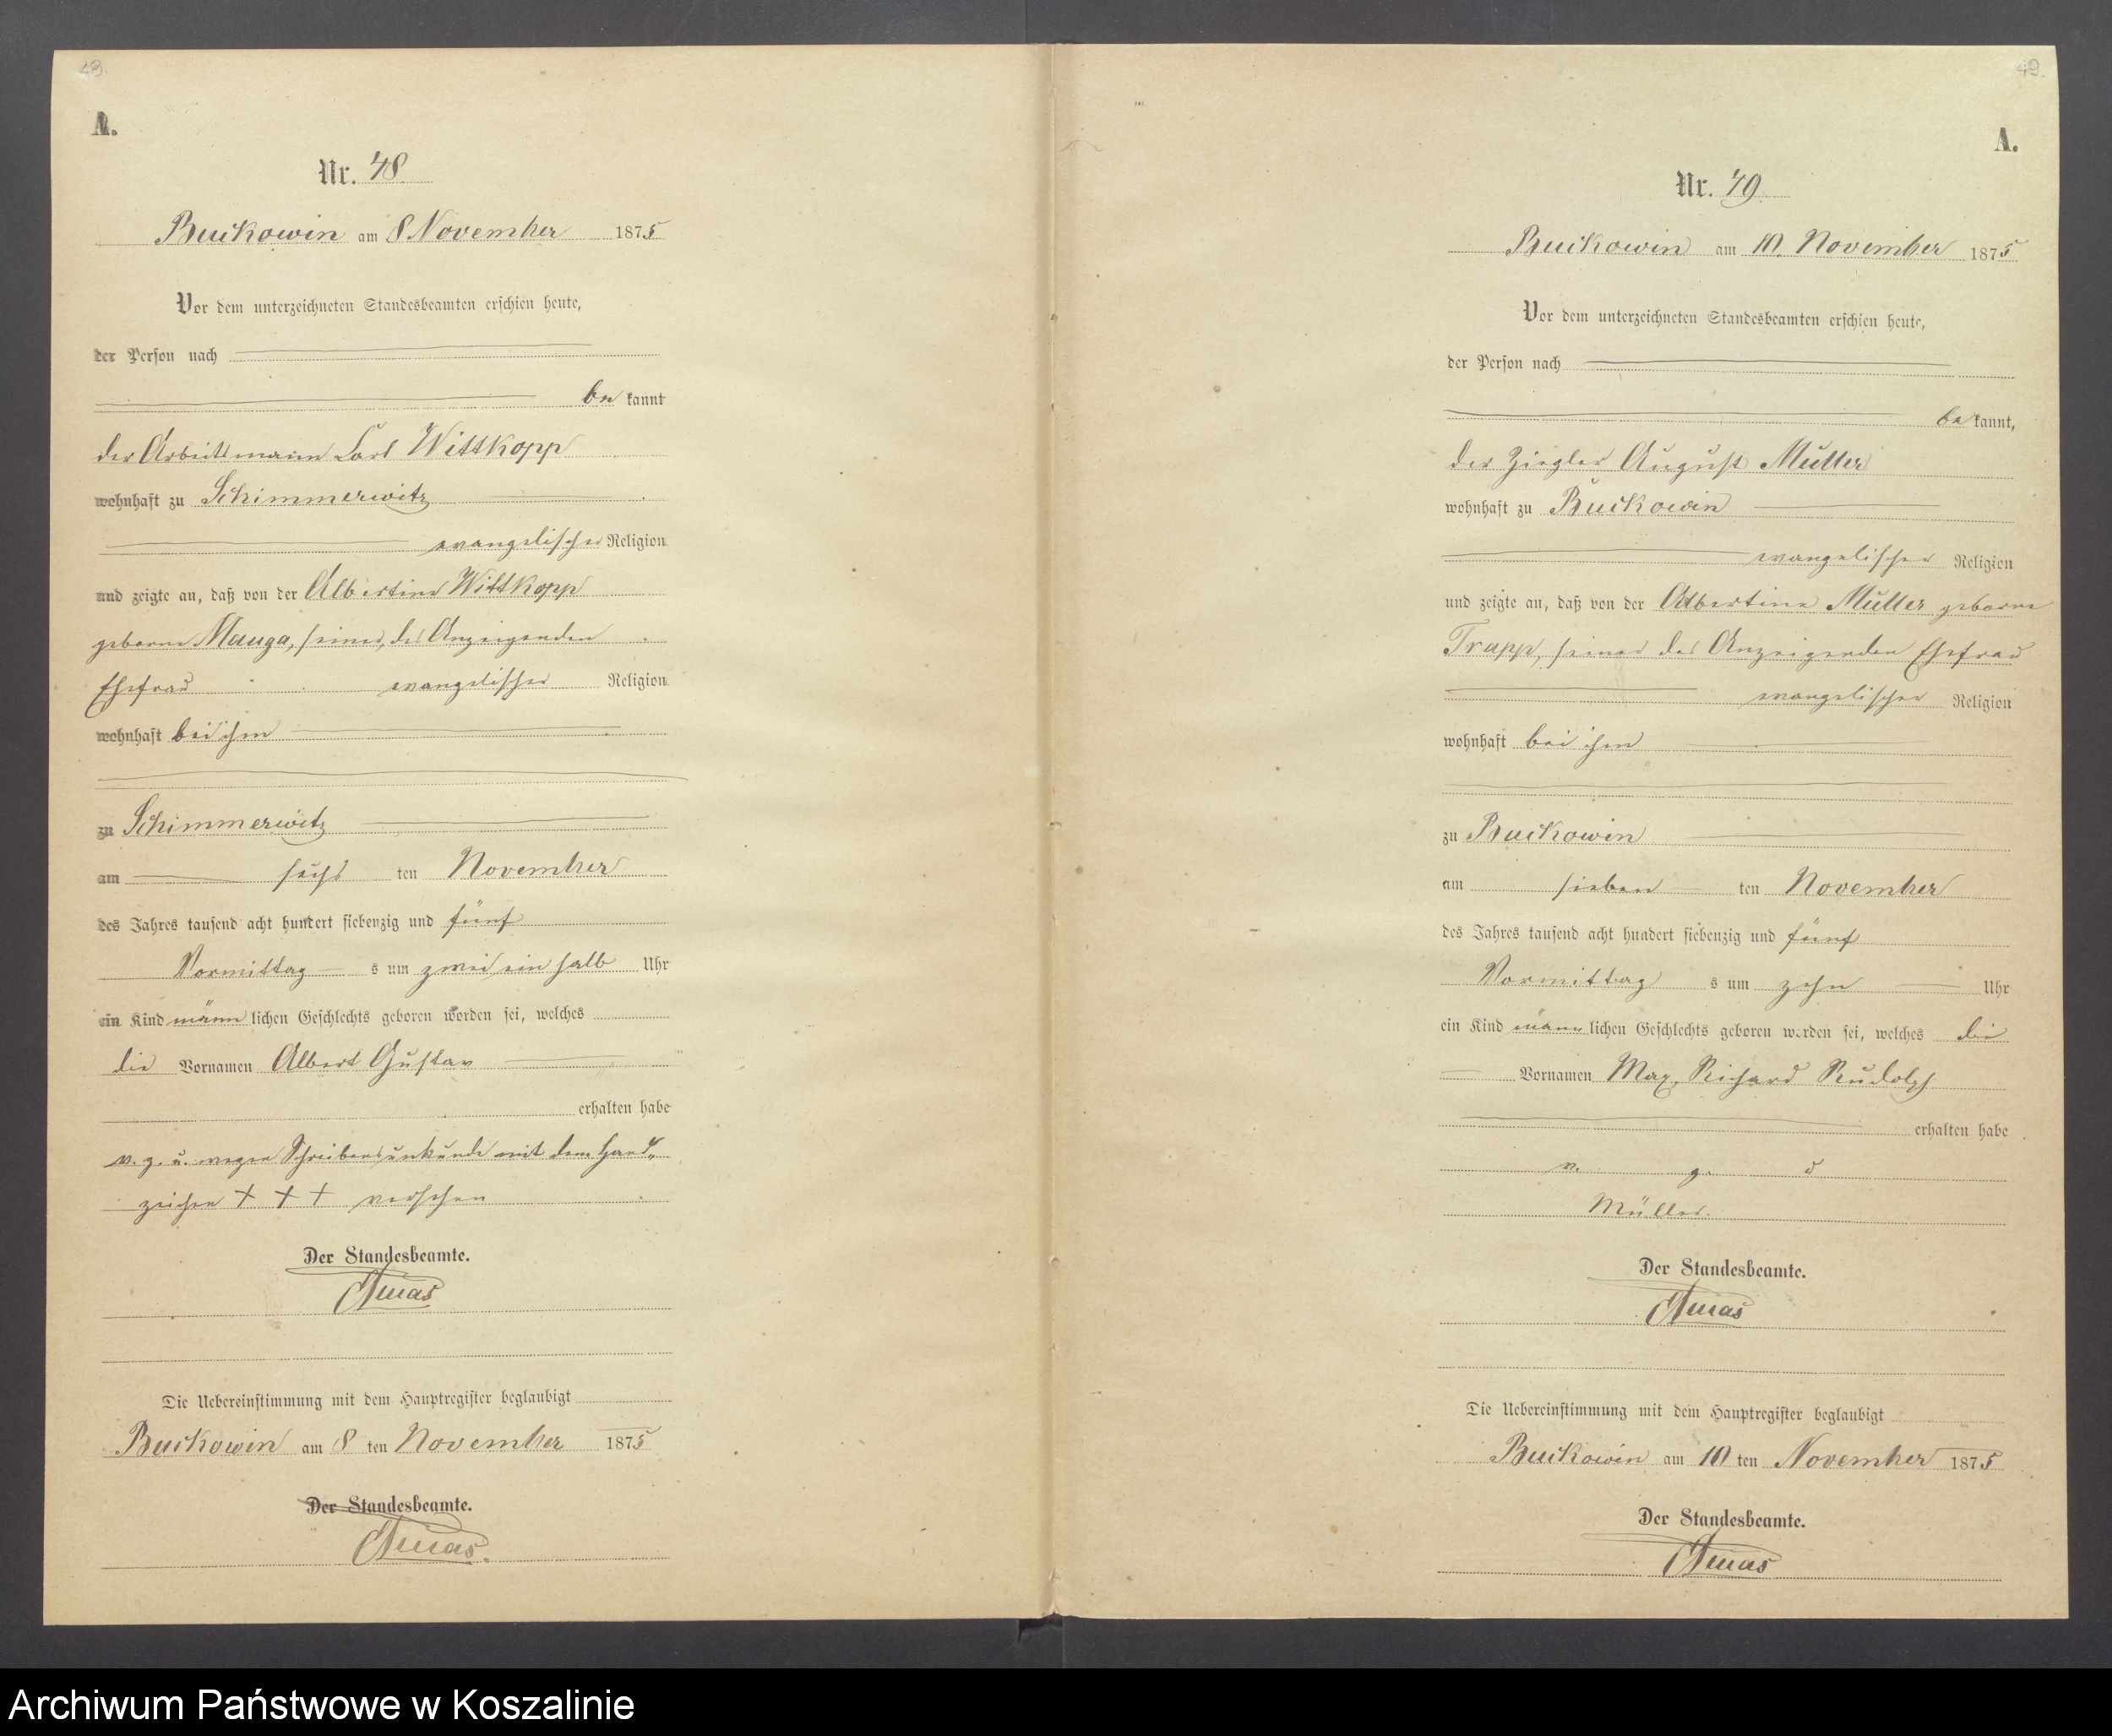 48.
A.
Nr. 48.
Buckowin am 8 November 1875
Vor dem unterzeichneten Standesbeamten erschien heute,
der Person nach
be kannt
der Arbeitsmann Carl Wittkopp
wohnhaft zu Schimmerwitz
evangelischer Religion
und zeigte an, daß von der Albertine Wittkopp
geborne Manga, seiner, des Anzeigenden
Ehefrau evangelischer Religion
wohnhaft bei ihm
zu Schimmerwitz
am sechs ten November
des Jahres tausend acht hundert siebenzig und fünf
Vormittag s um zwei ein halb Uhr
ein Kind männ lichen Geschlechts geboren worden sei, welches
die Vornamen Albert Gustav
erhalten habe
v. g. u. wegen Schreibensunkunde mit dem Hand„
zeichen + + + versehen
Der Standesbeamte.
Die Uebereinstimmung mit dem Hauptregister beglaubigt
Buckowin am 8 ten November 1875
Der Standesbeamte.
49.
A.
Nr. 49.
Buckowin am 10. November 1875
Vor dem unterzeichneten Standesbeamten erschien heute,
der Person nach
be kannt,
der Ziegler August Müller
wohnhaft zu Buckowin
evangelischer Religion
und zeigte an, daß von der Albertine Müller geborne
Trapp, seiner des Anzeigenden Ehefrau
evangelischer Religion
wohnhaft bei ihm
zu Buckowin
am sieben ten November
des Jahres tausend acht hundert siebenzig und fünf
Vormittag s um zehn Uhr
ein Kind männ lichen Geschlechts geboren worden sei, welches die
Vornamen Max, Richard Rudolph
erhalten habe
v. g. u
Müller.
Der Standesbeamte.
Die Uebereinstimmung mit dem Hauptregister beglaubigt
Buckowin am 10 ten November 1875
Der Standesbeamte.
Archiwum Państwowe w Koszalinie